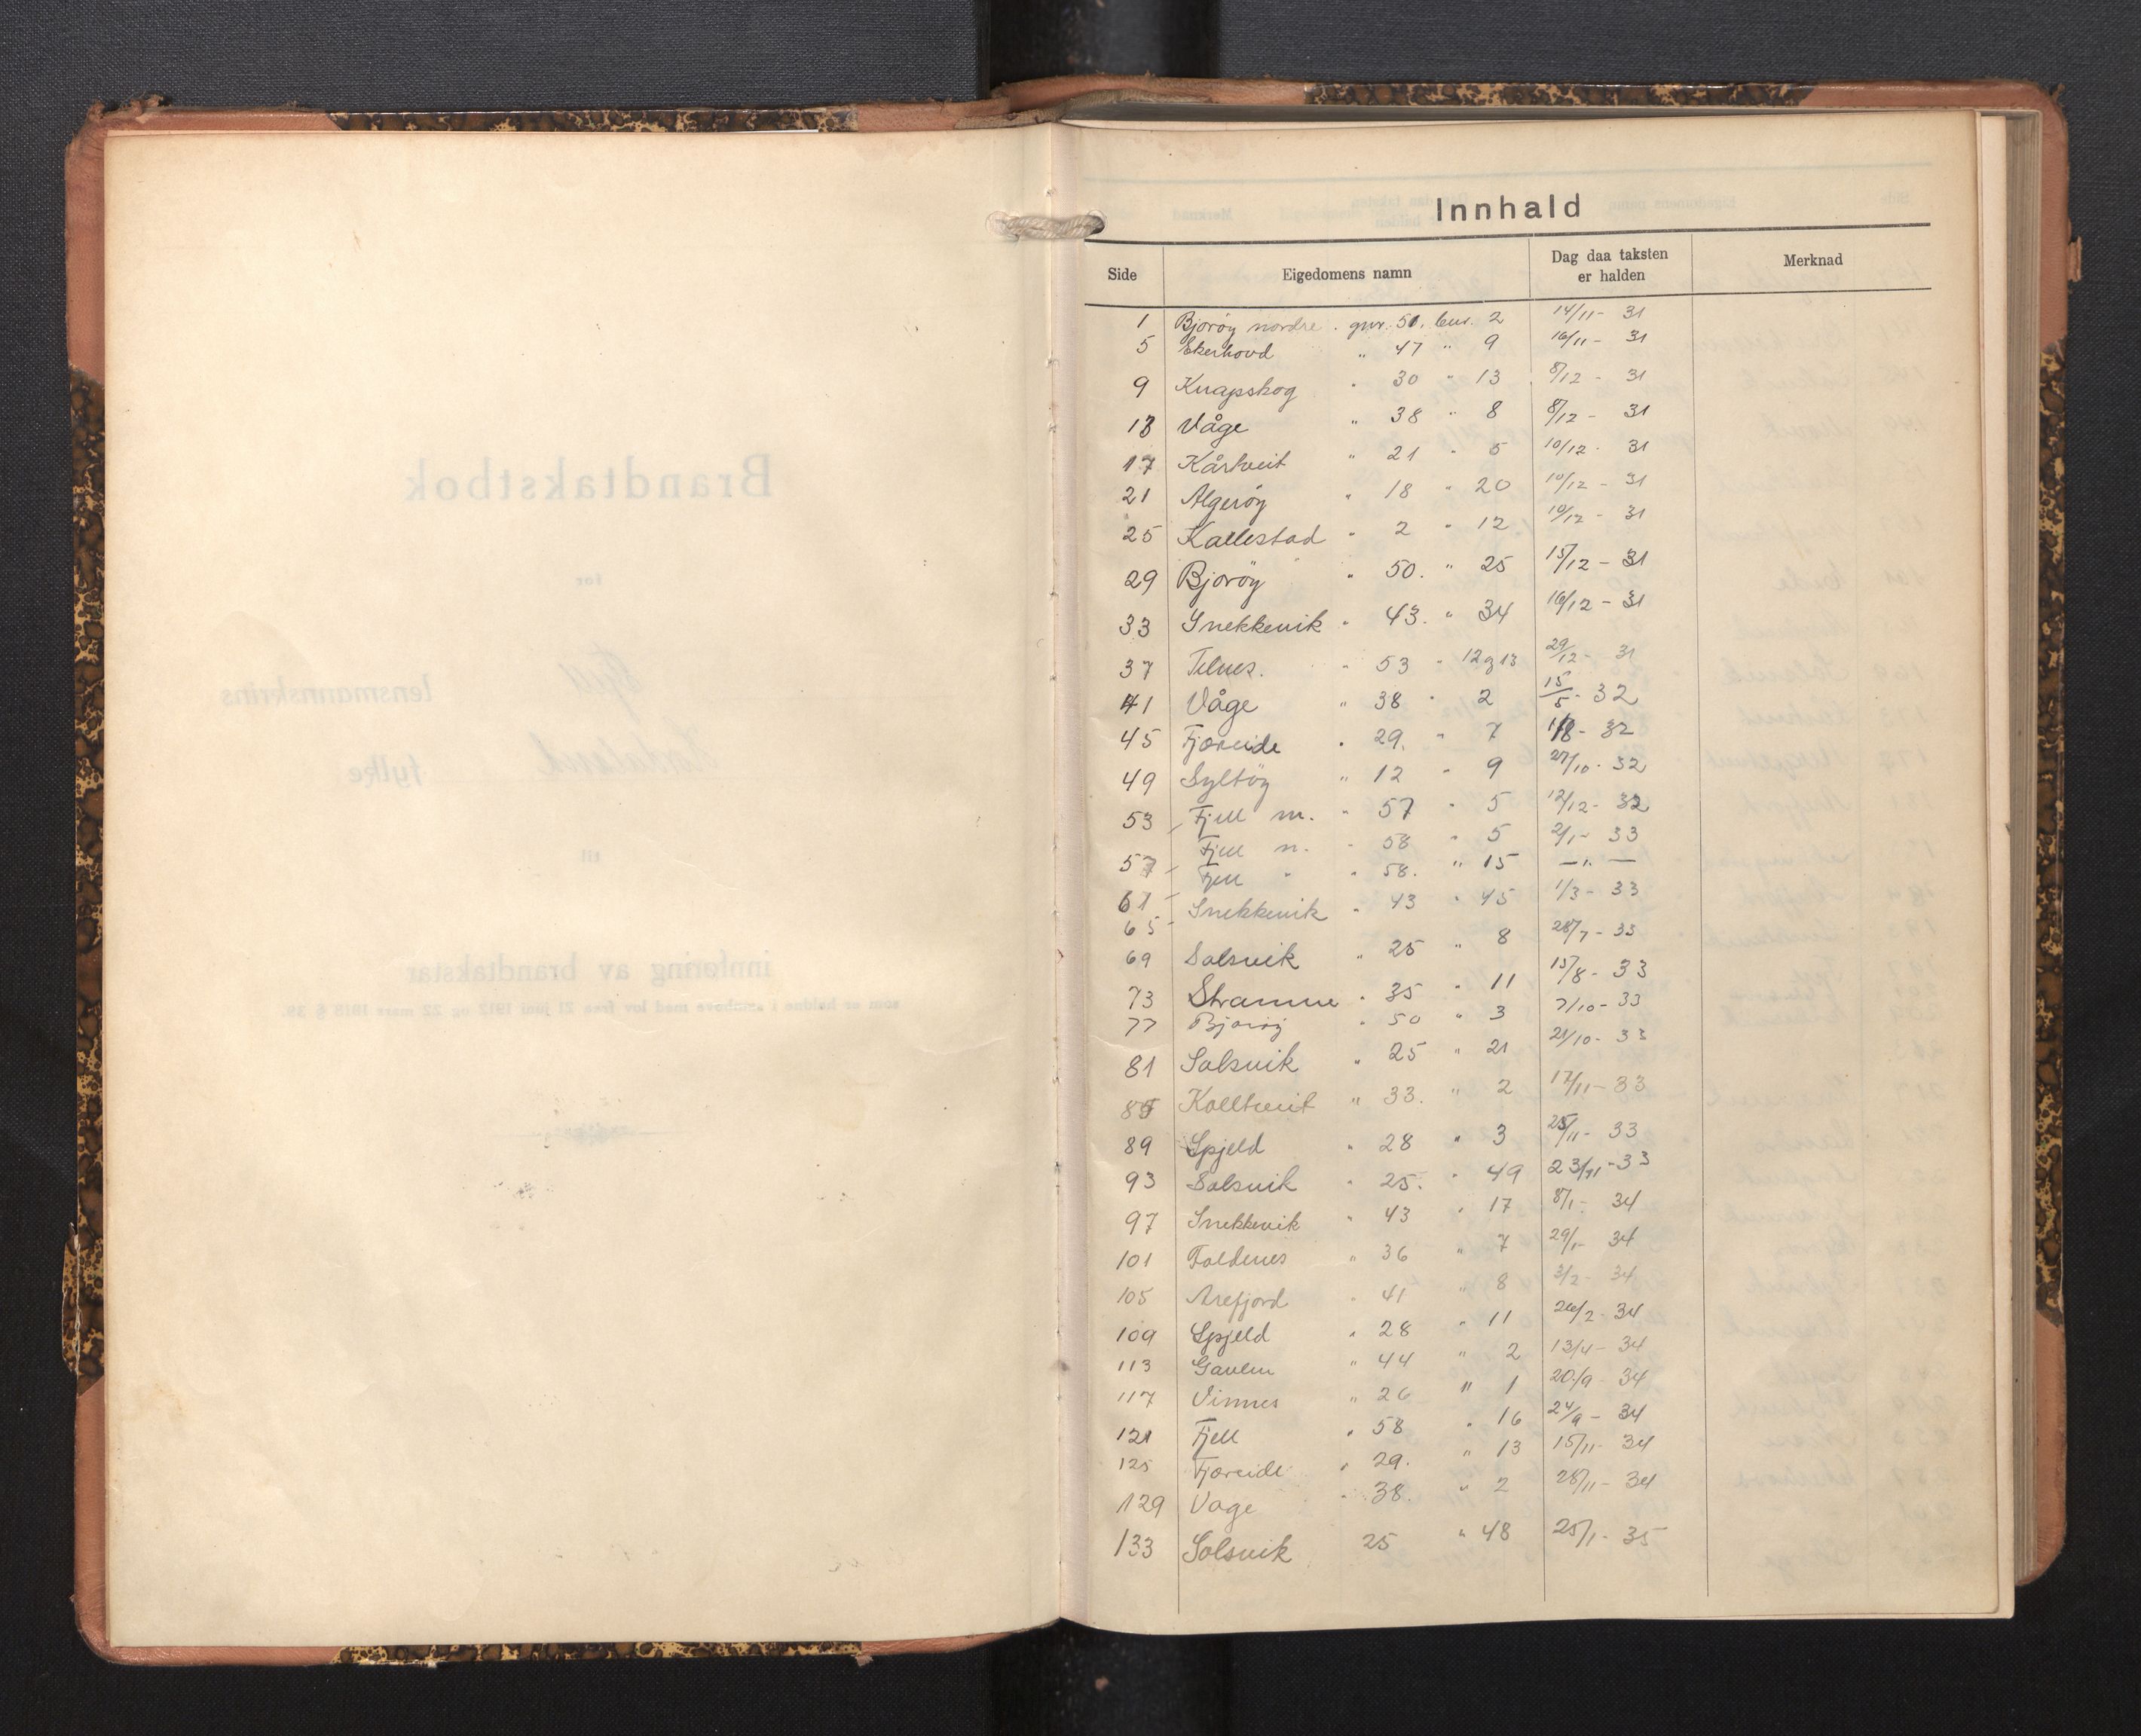 Innhald
Side Eigedomens namn Dag daa taksten er halden Merknad
1 Bjorøy nordre . gnr. 51. bnr. 2 14/11 - 31
5 Ekerhovd " 47 " 9 16/11 - 31
9 Knapskog " 30 " 13 8/12 - 31
13 Våge " 38 " 8 8/12 - 31
17 Kårtveit " 21 " 5 10/12 - 31
21 Algerøy " 18 " 20 10/12 - 31
25 Kallestad " 2 " 12 10/12 - 31
29 Bjorøy " 50. " 25 15/12 - 31
33 Snekkevik " 43. " 34 16/12 - 31
37 Telnes. " 53 " 12 g 13 29/12 - 31
41 Våge " 38 " 2 15/5 - 32
45 Fjæreide " 29. " 7 1/8 - 32
49 Syltøy " 12 " 9 27/10 - 32
53 Fjell m. " 57 " 5 12/12 - 32
57 Fjell n. " 58 " 5 2/1 - 33
61 Fjell " " 58. " 15 — " —
65 Snekkevik " 43 " 45 1/3 - 33
69 Solsvik " 25 " 8 28/7 - 33
73 Straume " 35 " 11 15/8 - 33
77 Bjorøy " 50 " 3 7/10 - 33
81 Solsvik " 25 " 21 21/10 - 33
85 Kolltveit " 33. " 2 17/11 - 33
89 Spjeld " 28 " 3 25/11 - 33
93 Solsvik " 25. " 49 23/11 - 33
97 Snekkevik " 43 " 17 8/1 - 34
101 Foldnes " 36 " 7 29/1 - 34
105 Arefjord " 41 " 8 3/2 - 34
109 Spjeld " 28 " 11 26/2 - 34
113 Gavlen " 44 " 2 13/4 - 34
117 Vinnes " 26 " 1 20/9 - 34
121 Fjell " 58 " 16 24/9 - 34
125 Fjæreide " 29. " 13 15/11 - 34
129 Vage " 38. " 2 28/11 - 34
133 Solsvik 25 " 48 25/1 - 35